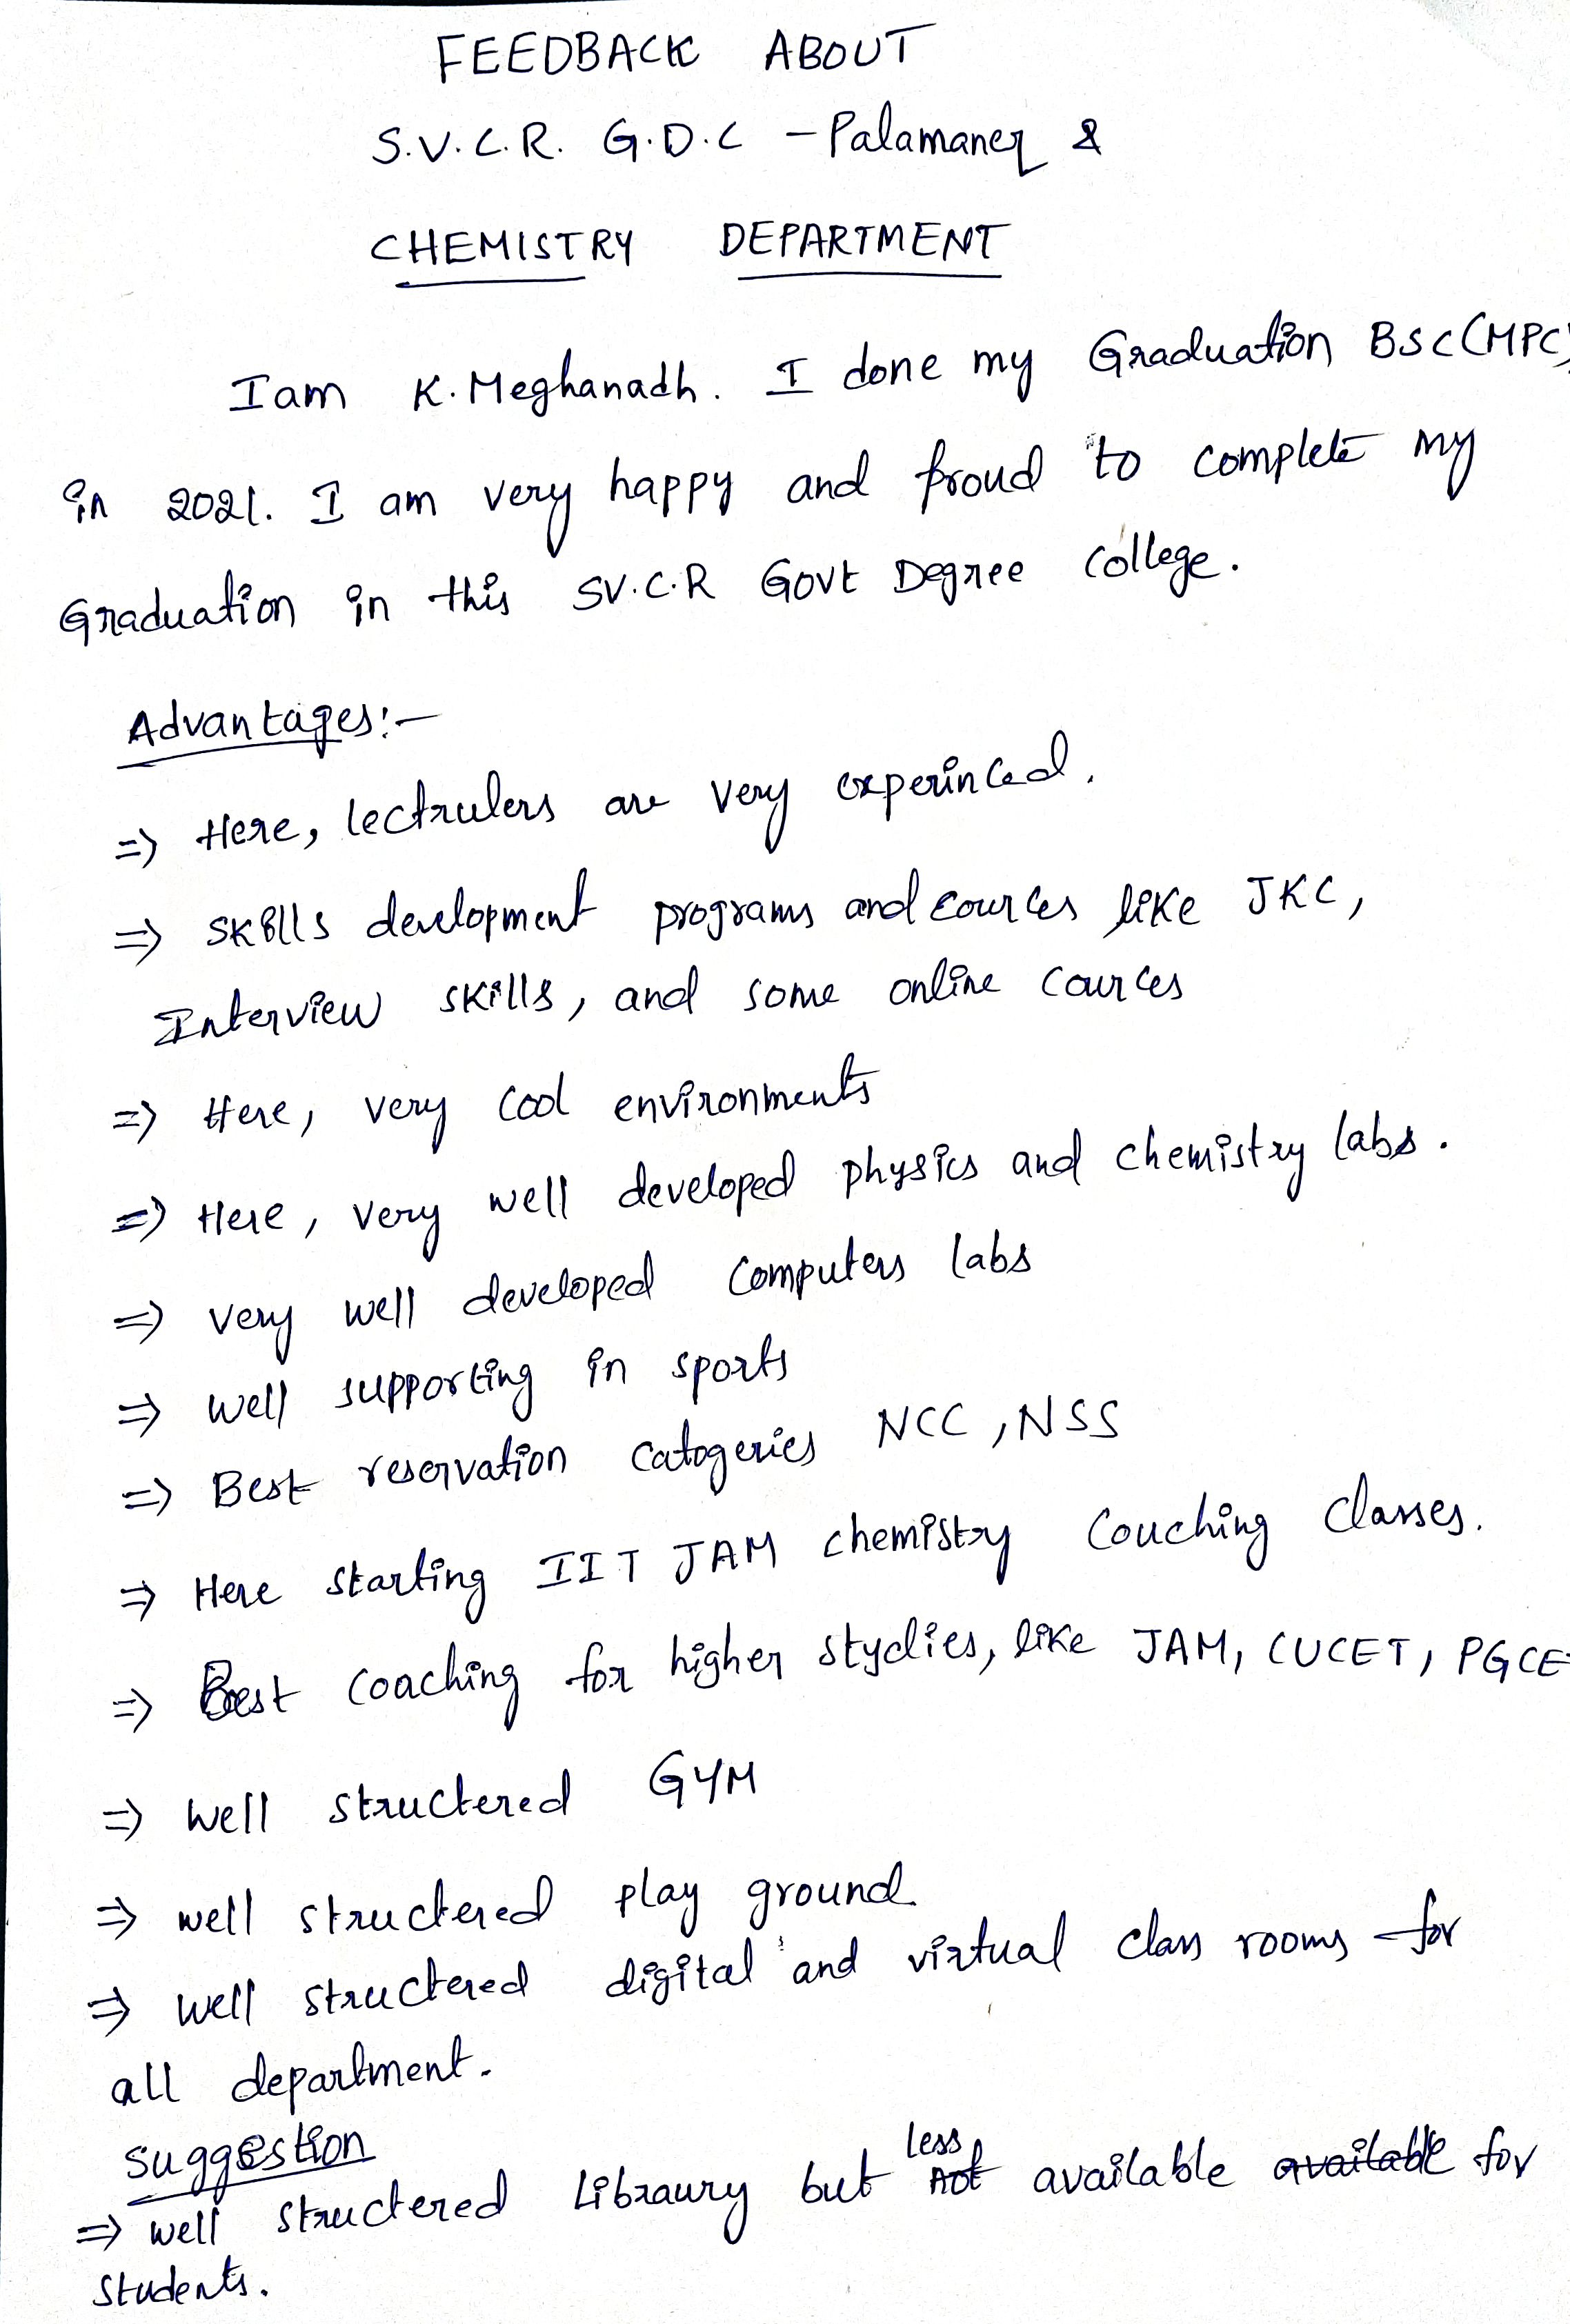 FEEDBACK ABOUT
S.V.C.R. G.D.C - Palamaner &
CHEMISTRY DEPARTMENT
Iam K.Meghanadh. I done my Graduation BSC(MPC)
in 2021. I am very happy and proud to complete my
Graduation in this SV.C.R Govt Degree college.
Advantages:-
=> Here, lectrulers are very experinced.
=> Skills development programs and cources like JKC,
Interview skills, and some online cources
=> Here, very cool environments
=> Here, very well developed physics and chemistry labs.
=> very well developed computers labs
=> well supporting in sports
=> Best reservation catogeries NCC, NSS
=> Here starting IIT JAM chemistry couching classes.
=> Best coaching for higher stydies, like JAM, CUCET, PGCE
=> well structered GYM
=> well structered play ground
=> well structered digital and virtual class rooms for
all department.
suggestion
=> well structered Libraury but less not available available for
students.